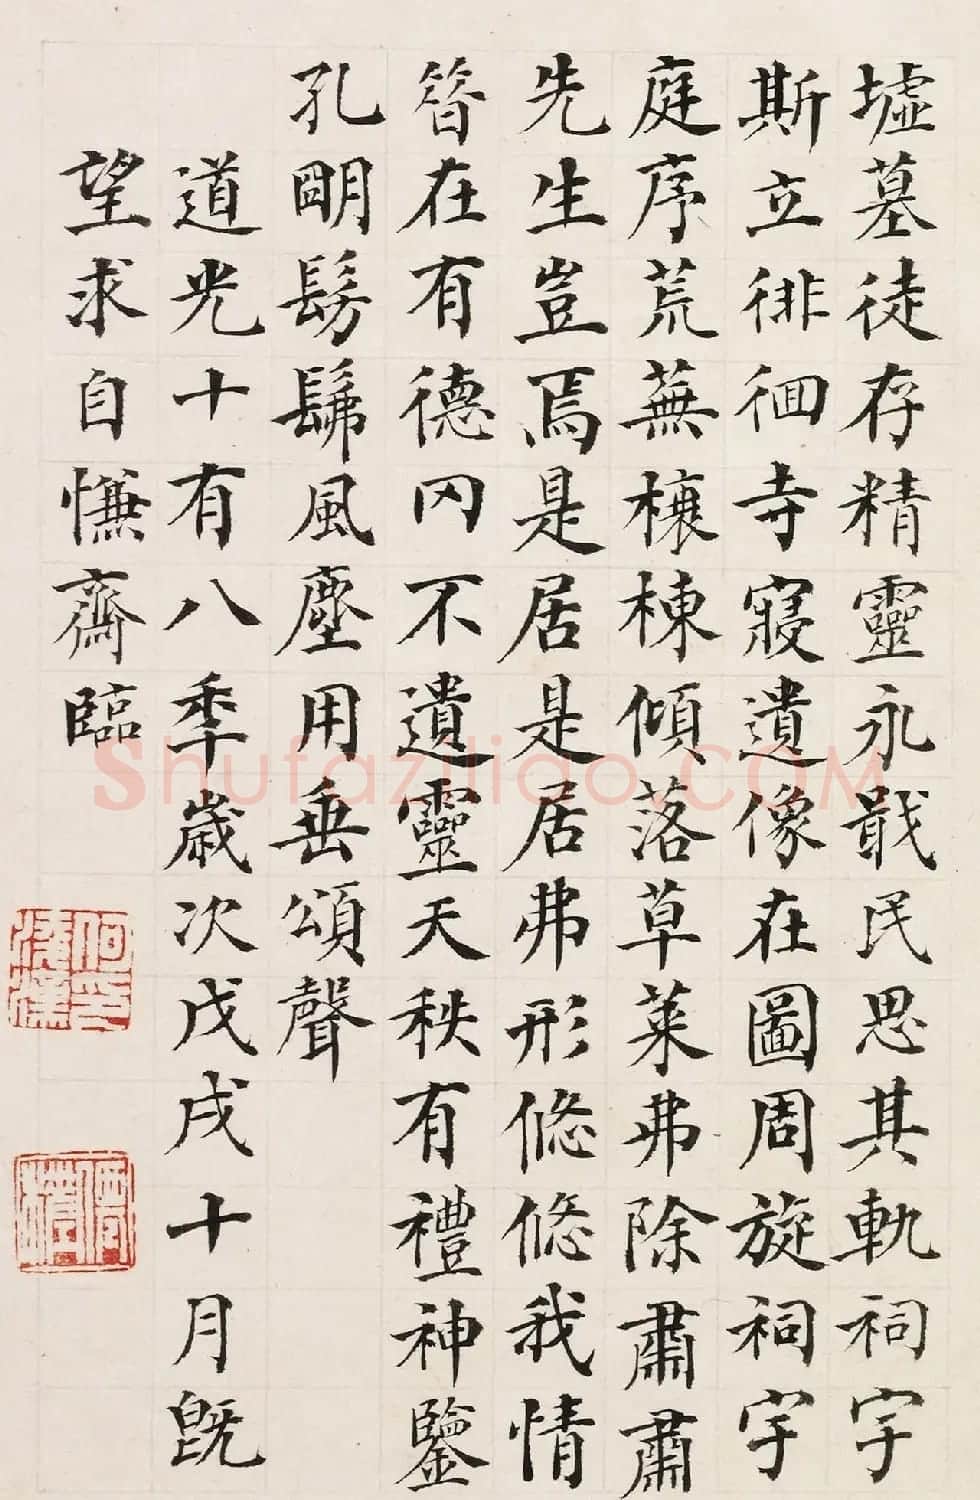 墟墓徒存精靈永戢民思其軌祠宇
斯立徘徊寺寢遺像在圖周旋祠宇
庭序荒蕪榱棟傾落草萊弗除肅肅
先生豈焉是居是居弗形悠悠我情
昝在有德罔不遺靈天秩有禮神鑒
孔明髣髴風塵用垂頌聲
道光十有八秊歲次戊戌十月既
望求自慊齋臨
Shufaziliao.COM